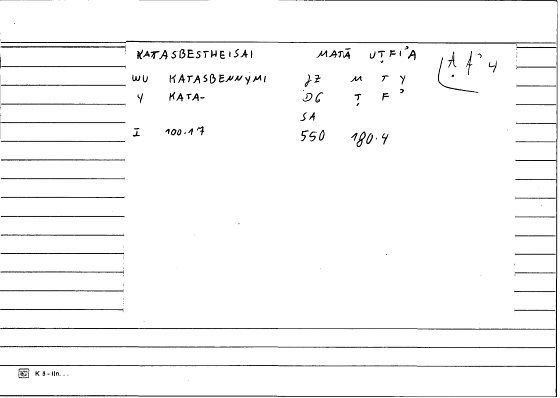 KATASBESTHEISAI MATĀ UṬFIʾA
WU KATASBENNYMI JZ M T Y
Y KATA- DG Ṭ F ʾ
SA
I 100.17 550 180.4
K 8 - IIn. . .